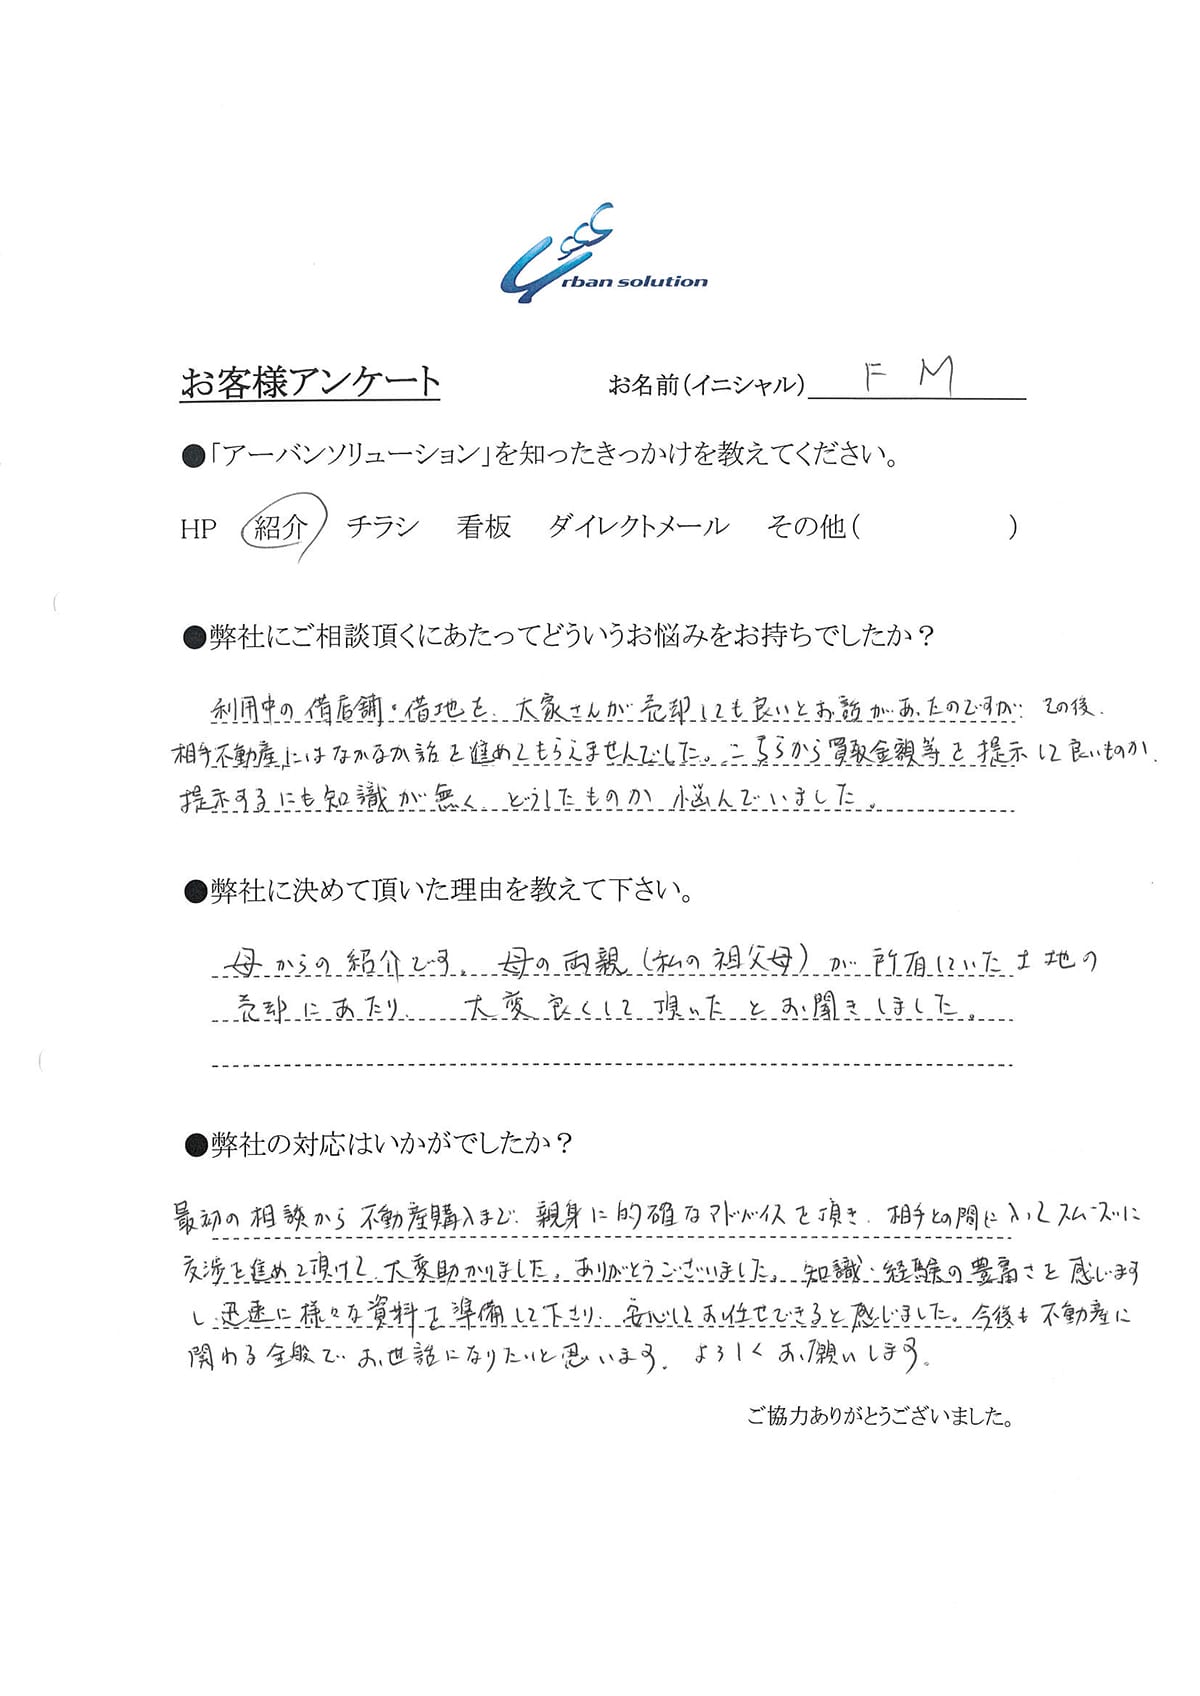 Urban solution
お客様アンケート お名前(イニシャル) F M
●「アーバンソリューション」を知ったきっかけを教えてください。
HP 紹介 チラシ 看板 ダイレクトメール その他( )
●弊社にご相談頂くにあたってどういうお悩みをお持ちでしたか？
利用中の借店舗・借地を、大家さんが売却しても良いとお話があったのですが、その後、
相手不動産にはなかなか話を進めてもらえませんでした。こちらから買取金額等を提示して良いものか、
提示するにも知識が無く、どうしたものか悩んでいました。
●弊社に決めて頂いた理由を教えて下さい。
母からの紹介です。母の両親(私の祖父母)が所有していた土地の
売却にあたり、大変良くして頂いたとお聞きしました。
●弊社の対応はいかがでしたか？
最初の相談から不動産購入まで、親身に的確なアドバイスを頂き、相手との間に入ってスムーズに
交渉を進めて頂けて、大変助かりました。ありがとうございました。知識・経験の豊富さを感じます
し、迅速に様々な資料を準備して下さり、安心してお任せできると感じました。今後も不動産に
関わる全般で、お世話になりたいと思います。よろしくお願いします。
ご協力ありがとうございました。